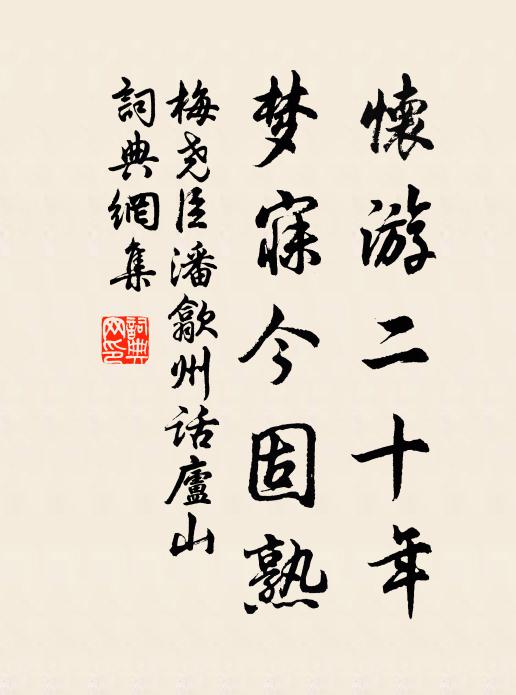 懷游二十年
梦寐今固熟
梅尧臣潘歙州话廬山
詞典網集
詞典网印